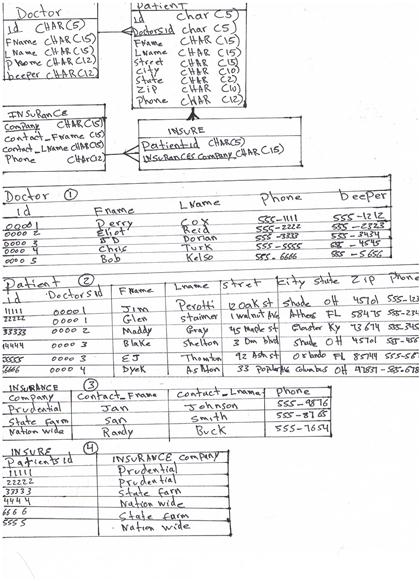 Doctor
id CHAR(5)
FName CHAR(15)
LName CHAR(15)
Phone CHAR(12)
beeper CHAR(12)
Patient
id char(5)
DoctorsId char(5)
FName CHAR(15)
LName CHAR(15)
street CHAR(15)
City CHAR(10)
State CHAR(2)
Zip CHAR(10)
Phone CHAR(12)
INSURANCE
Company CHAR(15)
contact_Fname (15)
contact_LName CHAR(15)
Phone CHAR(12)
INSURE
Patientid CHAR(5)
INSURANCES Company CHAR(15)
Doctor 1
id Fname LName Phone beeper
00001 Perry Cox 555-1111 555-1212
0000 2 Eliot Reid 555-2222 555-2323
0000 3 JD Dorian 555-3333 555-3434
0000 4 Chris Turk 555-5555 555-4545
0000 5 Bob Kelso 555-6666 555-5656
Patient 2
id DoctorsId FName Lname stret city state Zip Phone
11111 00001 Jim Perotti OH 45701
22222 0000 1 Glen staimer 1 walnut Ave Athens FL 58475
33333 0000 2 Maddy Gray 45 Maple st Ky 73674
44444 0000 3 Blake Shelton 3 shade OH 45701
55555 0000 3 EJ Thomton 92 Ash st Orlando FL 85744
6666 0000 4 33 OH
INSURANCE 3
Company Contact_Fname contact_Lname Phone
Prudential Jan Johnson 555-9876
State farm san smith 555-8765
Nation wide Randy Buck 555-7654
INSURE 4
Patientsid INSURANCE company
11111 Prudential
22222 Prudential
33333 State farn
4444 Nation wide
6666 State farm
5555 Nation wide